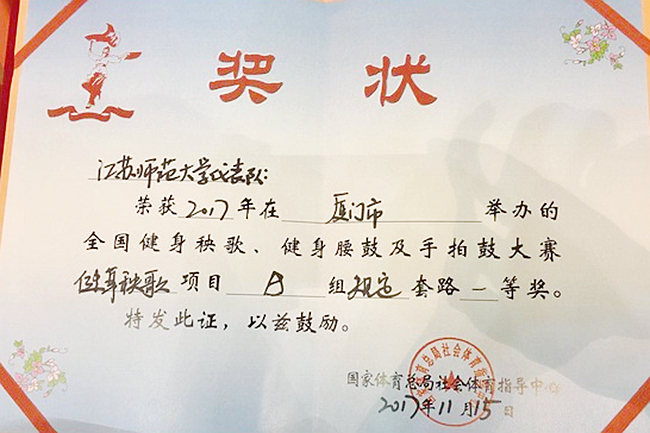 奖状
江苏师范大学代表队:
荣获2017年在厦门市举办的
全国健身秧歌、健身腰鼓及手拍鼓大赛
健身秧歌项目A组规定套路一等奖。
特发此证，以兹鼓励。
国家体育总局社会体育指导中心
2017年11月15日